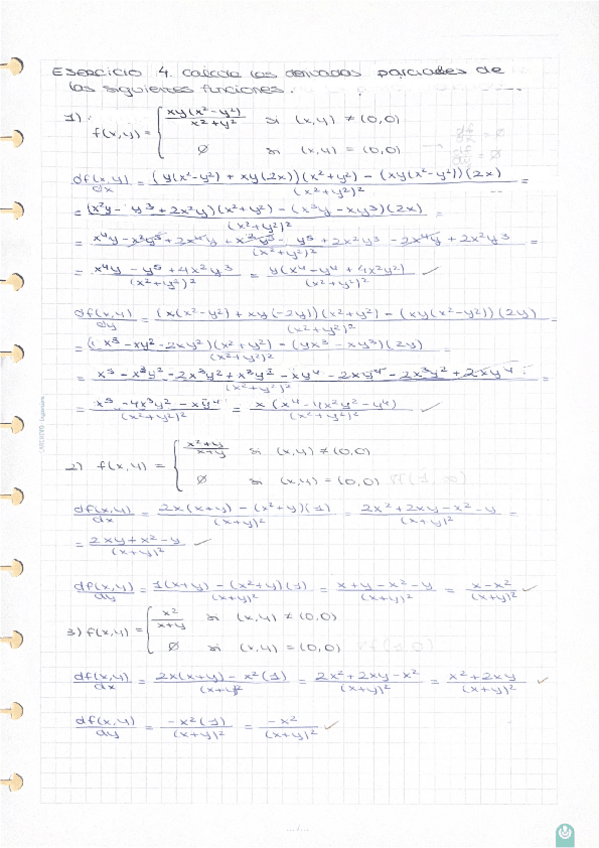 Ejercicio 4. Calcula las derivadas parciales de
las siguientes funciones.
1) f(x,y) = { xy(x²-y²) / x²+y² si (x,y) ≠ (0,0)
0 si (x,y) = (0,0)
df(x,y)/dx = (y(x²-y²) + xy(2x))(x²+y²) - (xy(x²-y²))(2x) / (x²+y²)² =
= (x²y - y³ + 2x²y)(x²+y²) - (x³y - xy³)(2x) / (x²+y²)² =
= x⁴y - x²y³ + 2x⁴y + x²y³ - y⁵ + 2x²y³ - 2x⁴y + 2x²y³ / (x²+y²)² =
= x⁴y - y⁵ + 4x²y³ / (x²+y²)² = y(x⁴ - y⁴ + 4x²y²) / (x²+y²)² ✓
df(x,y)/dy = (x(x²-y²) + xy(-2y))(x²+y²) - (xy(x²-y²))(2y) / (x²+y²)² =
= (x³ - xy² - 2xy²)(x²+y²) - (yx³ - xy³)(2y) / (x²+y²)² =
= x⁵ - x³y² - 2x³y² + x³y² - xy⁴ - 2xy⁴ - 2x³y² + 2xy⁴ / (x²+y²)² =
= x⁵ - 4x³y² - xy⁴ / (x²+y²)² = x(x⁴ - 4x²y² - y⁴) / (x²+y²)² ✓
2) f(x,y) = { x²+y / x+y si (x,y) ≠ (0,0)
0 si (x,y) = (0,0)
df(x,y)/dx = 2x(x+y) - (x²+y)(1) / (x+y)² = 2x² + 2xy - x² - y / (x+y)² =
= 2xy + x² - y / (x+y)² ✓
df(x,y)/dy = 1(x+y) - (x²+y)(1) / (x+y)² = x+y-x²-y / (x+y)² = x-x² / (x+y)² ✓
3) f(x,y) = { x² / x+y si (x,y) ≠ (0,0)
0 si (x,y) = (0,0)
df(x,y)/dx = 2x(x+y) - x²(1) / (x+y)² = 2x² + 2xy - x² / (x+y)² = x² + 2xy / (x+y)² ✓
df(x,y)/dy = -x²(1) / (x+y)² = -x² / (x+y)² ✓
.../...